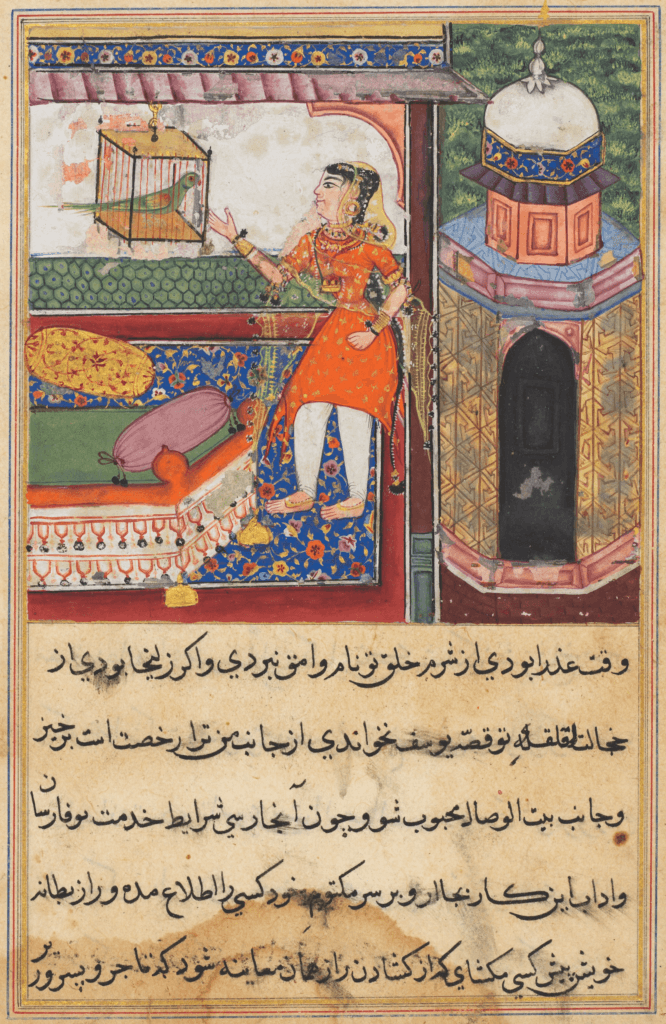 وقت عذرا بودی از شرم خلق تو نام وامق نبردی و اکر زلیخا بودی از
خجالت قلقله تو قصّه یوسف نخواندی از جانب من ترا رخصت است برخیز
و جانب بیت الوصال محبوب شو و چون آنجا رسی شرایط خدمت بوفا رسان
و اداب این کار بجا ار و بر سر مکتوم خود کسی را اطلاع مده و راز بطانه
خویش پیش کسی مکشای که از کشادن راز همان معاینه شود که